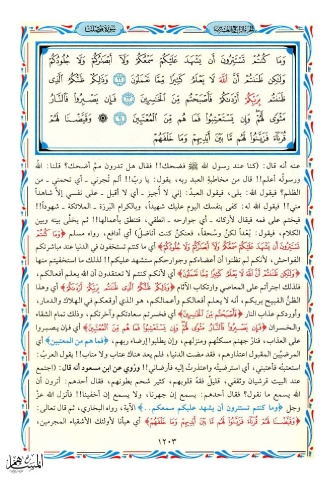 سورة فصلت
وَمَا كُنتُمْ تَسْتَتِرُونَ أَن يَشْهَدَ عَلَيْكُمْ سَمْعُكُمْ وَلَا أَبْصَٰرُكُمْ وَلَا جُلُودُكُمْ
وَلَٰكِن ظَنَنتُمْ أَنَّ ٱللَّهَ لَا يَعْلَمُ كَثِيرًا مِّمَّا تَعْمَلُونَ ٢٢ وَذَٰلِكُمْ ظَنُّكُمُ ٱلَّذِي
ظَنَنتُم بِرَبِّكُمْ أَرْدَىٰكُمْ فَأَصْبَحْتُم مِّنَ ٱلْخَٰسِرِينَ ٢٣ فَإِن يَصْبِرُوا۟ فَٱلنَّارُ
مَثْوًى لَّهُمْ وَإِن يَسْتَعْتِبُوا۟ فَمَا هُم مِّنَ ٱلْمُعْتَبِينَ ٢٤ وَقَيَّضْنَا لَهُمْ
قُرَنَآءَ فَزَيَّنُوا۟ لَهُم مَّا بَيْنَ أَيْدِيهِمْ وَمَا خَلْفَهُمْ
عنه أنه قال: (كنا عند رسول الله ﷺ فضحك!! فقال هل تدرون ممَّ أضحك؟ قلنا: الله
ورسوله أعلم!! قال: من مخاطبة العبد ربه، يقول: يا ربّ!! ألم تُجرني - أي تحمني - من
الظلم؟ فيقول الله: بلى، فيقول العبدُ: إني لا أجيز - أي لا أقبل - على نفسي إلاّ شاهداً
مني!! فيقول الله له: كفى بنفسك اليوم عليك شهيداً، وبالكرام البررة - الملائكة - شهوداً!!
فيختم على فمه فيقال لأركانه - أي جوارحه - انطقي، فتنطق بأعمالها!! ثم يخلّى بينه وبين
الكلام، فيقول: بُعداً لكنَّ وسُحقاً، فعنكنَّ كنت أناضل) أي أدافع، رواه مسلم ﴿وَمَا كُنتُمْ
تَسْتَتِرُونَ أَن يَشْهَدَ عَلَيْكُمْ سَمْعُكُمْ وَلَا أَبْصَٰرُكُمْ وَلَا جُلُودُكُمْ﴾ أي ما كنتم تستخفون في الدنيا عند مباشرتكم
الفواحش، لأنكم لم تظنوا أن أعضاءكم وجوارحكم ستشهد عليكم!! لذلك ما استخفيتم منها
﴿وَلَٰكِن ظَنَنتُمْ أَنَّ ٱللَّهَ لَا يَعْلَمُ كَثِيرًا مِّمَّا تَعْمَلُونَ﴾ أي لأنكم كنتم لا تعتقدون أن الله يعلم أفعالكم،
فلذلك اجترأتم على المعاصي وارتكاب الآثام ﴿وَذَٰلِكُمْ ظَنُّكُمُ ٱلَّذِي ظَنَنتُم بِرَبِّكُمْ أَرْدَىٰكُمْ﴾ أي وهذا
الظنُّ القبيح بربكم، أنه لا يعلم أفعالكم وأعمالكم، هو الذي أوقعكم في الهلاك والدمار،
وأوردكم عذاب النار ﴿فَأَصْبَحْتُم مِّنَ ٱلْخَٰسِرِينَ﴾ أي فخسرتم سعادتكم وآخرتكم، وذلك تمام الشقاء
والخسران ﴿فَإِن يَصْبِرُوا۟ فَٱلنَّارُ مَثْوًى لَّهُمْ وَإِن يَسْتَعْتِبُوا۟ فَمَا هُم مِّنَ ٱلْمُعْتَبِينَ﴾ أي فإن يصبروا
على العذاب، فنار جهنم مسكنهم ومنزلهم، وإن يطلبوا إرضاء ربهم، ﴿فما هم من المعتبين﴾ أي
المرضيّين المقبول اعتذارهم، فقد مضت الدنيا، فلم يعد هناك عتاب ولا متاب!! يقول العرب:
استعتبتُه فأعتبني، أي استرضيتُه واعتذرتُ إليه فأرضاني!! ورُوي عن ابن مسعود أنه قال: (اجتمع
عند البيت قرشيان وثقفي، قليلٌ فقهُ قلوبهم، كثير شحم بطونهم، فقال أحدهم: أترون أن
الله يسمع ما نقول؟ فقال أحدهم: يسمع إن جهرنا، ولا يسمع إن أخفينا!! فأنزل الله عزَّ
وجل ﴿وما كنتم تستترون أن يشهد عليكم سمعكم..﴾ الآية، رواه البخاري، ثم قال تعالى:
﴿وَقَيَّضْنَا لَهُمْ قُرَنَآءَ فَزَيَّنُوا۟ لَهُم مَّا بَيْنَ أَيْدِيهِمْ وَمَا خَلْفَهُمْ﴾ أي هيأنا لأولئك الأشقياء المجرمين،
١٢٠٣